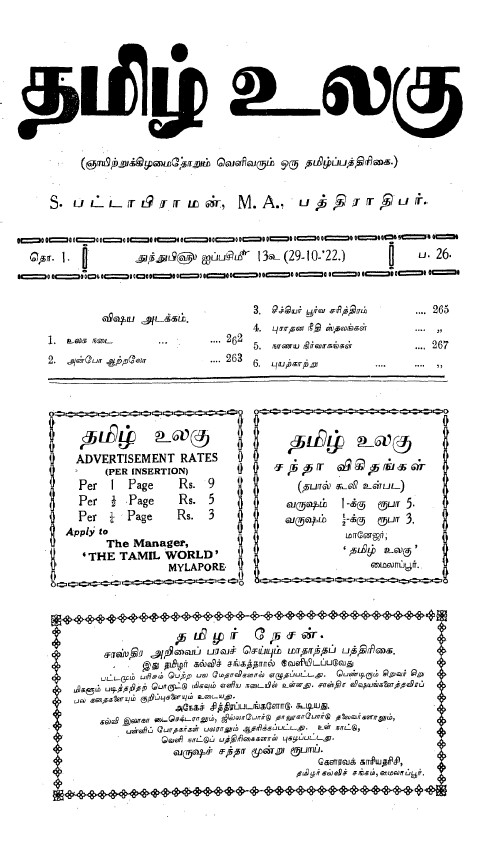 தமிழ் உலகு
(ஞாயிற்றுக்கிழமைதோறும் வெளிவரும் ஒரு தமிழ்ப்பத்திரிகை.)
S. பட்டாபிராமன், M. A., பத்திராதிபர்.
தொ. 1. துந்துபிஹு ஐப்பசிமீ 13உ (29-10-'22.) ப. 26.
விஷய அடக்கம்.
1. உலக நடை ... .... 262
2. அன்போ ஆற்றலோ .... 263
3. சீக்கியர் பூர்வ சரித்திரம் .... 265
4. புராதன நீதி ஸ்தலங்கள் .... ,,
5. நாணய நிர்வாகங்கள் .... 267
6. புயற்காற்று .... .... ,,
தமிழ் உலகு
ADVERTISEMENT RATES
(PER INSERTION)
Per 1 Page Rs. 9
Per ½ Page Rs. 5
Per ¼ Page Rs. 3
Apply to
The Manager,
'THE TAMIL WORLD'
MYLAPORE
தமிழ் உலகு
சந்தா விகிதங்கள்
(தபால் கூலி உள்பட)
வருஷம் 1-க்கு ரூபா 5.
வருஷம் ½-க்கு ரூபா 3.
மானேஜர்,
'தமிழ் உலகு'
மைலாப்பூர்.
தமிழர் நேசன்.
சாஸ்திர அறிவைப் பரவச் செய்யும் மாதாந்தப் பத்திரிகை.
இது தமிழர் கல்விச் சங்கத்தால் வெளியிடப்படுவது
பட்டமும் பரிசும் பெற்ற பல மேதாவிகளால் எழுதப்பட்டது. பெண்டிரும் சிறுவர் சிறு
மிகளும் படித்தறிதற் பொருட்டு மிகவும் எளிய நடையில் உள்ளது. சாஸ்திர விஷயங்களைத்தவிரப்
பல கதைகளையும் குறிப்புகளையும் உடையது.
அநேகச் சித்திரப்படங்களோடு கூடியது.
கல்வி இலாகா டைரெக்டராலும், ஜில்லாபோர்டு தாலூகாபோர்டு தலைவர்களாலும்,
பன்னிப் போதகர்கள் பலராலும் ஆதரிக்கப்பட்டது. உள் நாட்டு,
வெளி நாட்டுப் பத்திரிகைகளால் புகழப்பட்டது.
வருஷச் சந்தா மூன்று ரூபாய்.
கௌரவக் காரியதரிசி,
தமிழர்கல்விச் சங்கம், மைலாப்பூர்.